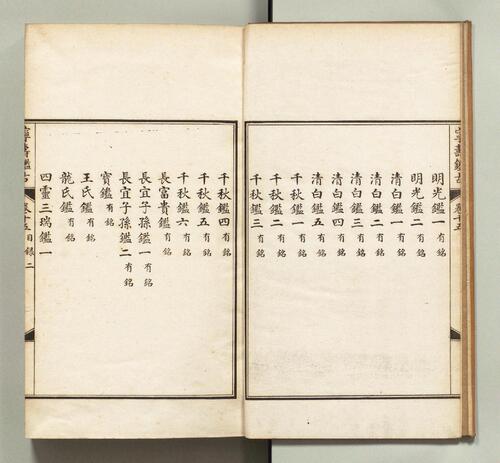 明光鑑一有銘
明光鑑二有銘
清白鑑一有銘
清白鑑二有銘
清白鑑三有銘
清白鑑四有銘
清白鑑五有銘
千秋鑑一有銘
千秋鑑二有銘
千秋鑑三有銘
千秋鑑四有銘
千秋鑑五有銘
千秋鑑六有銘
長富貴鑑有銘
長宜子孫鑑一有銘
長宜子孫鑑二有銘
寶鑑有銘
王氏鑑有銘
龍氏鑑有銘
四靈三瑞鑑一
寧壽鑑古
卷十五目錄
二